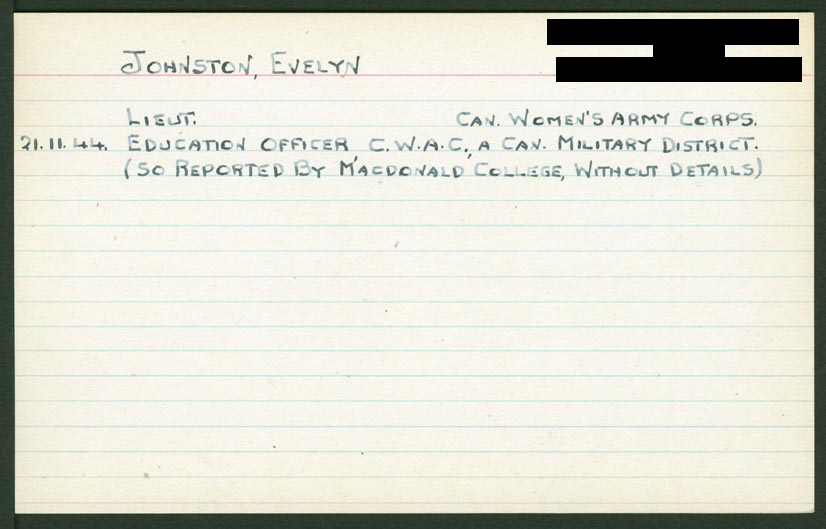 JOHNSTON, EVELYN
LIEUT. CAN. WOMEN'S ARMY CORPS.
21.11.44. EDUCATION OFFICER C.W.A.C., A CAN. MILITARY DISTRICT.
(SO REPORTED BY MACDONALD COLLEGE, WITHOUT DETAILS)